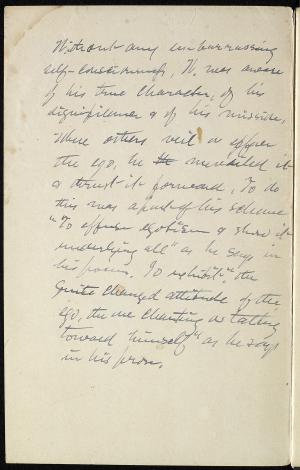 Without any embarrassing
self-consciousness, W. was aware
of his true character, of his
significance & of his mission.
Where others veil or efface
the ego, he revealed it
& thrust it forward. To do
this was a part of his scheme
"To effuse egotism & show it
underlying all" as he says in
his poems. To exhibit "the
quite changed attitude of the
ego, the one chanting or talking
toward himself" as he says
in his prose.